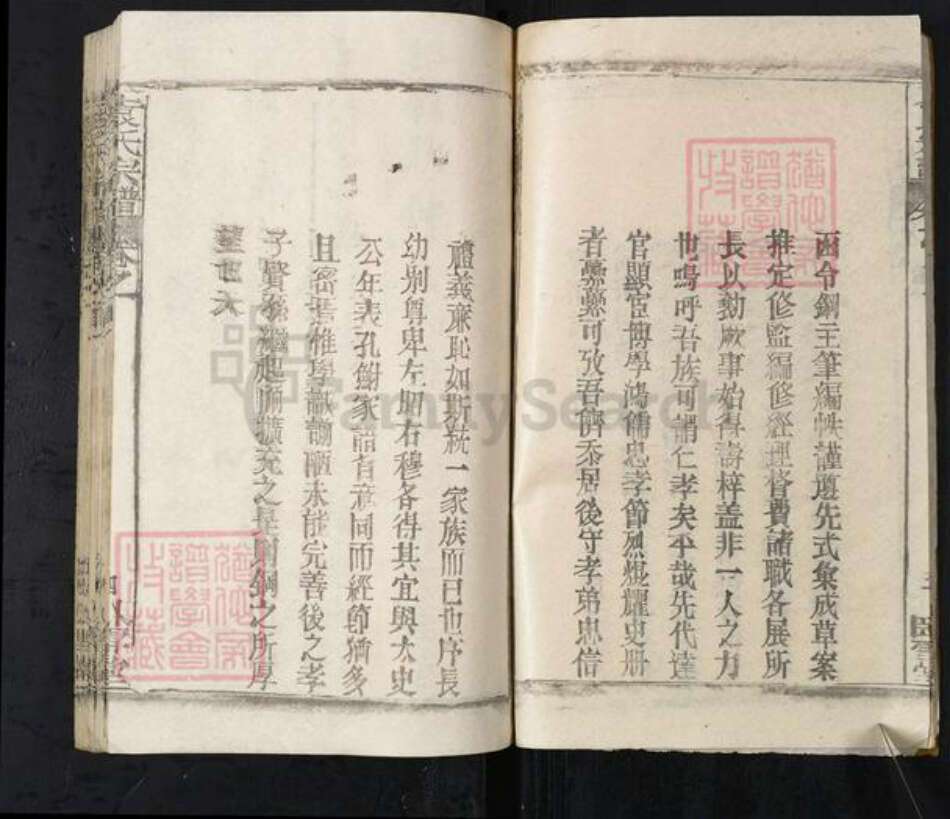 而令鋼主筆編帙謹遵先式彙成草案
推定修監編修經理督費諸職各展所
長以勷厥事始得壽梓蓋非一人之力
也嗚呼吾族可謂仁孝矣乎哉先代達
官顯宦博學鴻儒忠孝節烈焜耀史册
者纍纍可攷吾儕忝居後守孝弟忠信
禮義廉恥如斯統一家族而已也序長
幼别尊卑左昭右穆各得其宜與太史
公年表孔鮒家語有意同而經節猶多
且密焉惟學識謭陋未能完善後之孝
子賢孫繼起而擴充之是則鋼之所厚
望也夫
袁氏宗譜
卷之一
四
FamilySearch
譜學會
收藏